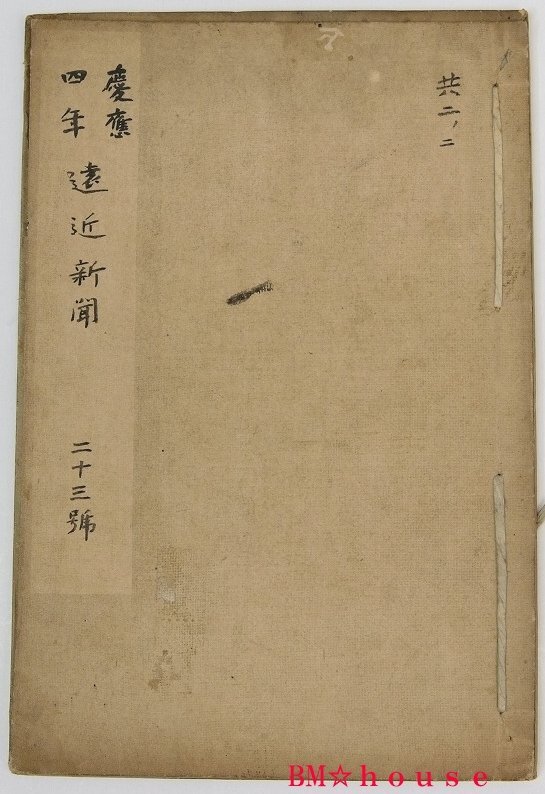 共二ノ二
慶應
四年 遠近新聞 二十三號
BM☆house